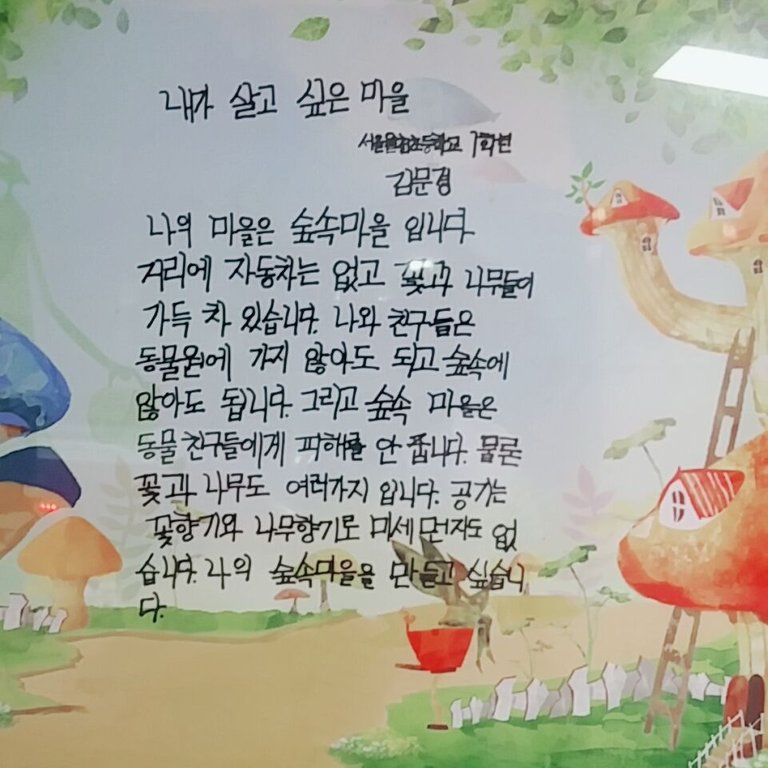 내가 살고 싶은 마을
초등학교 1학년
김문경
나의 마을은 숲속마을 입니다.
거리에 자동차는 없고 꽃과 나무들이
가득 차 있습니다. 나와 친구들은
동물원에 가지 않아도 되고 숲속에
않아도 됩니다. 그리고 숲속 마을은
동물 친구들에게 피해를 안 줍니다. 물론
꽃과 나무도 여러가지 입니다. 공기는
꽃향기와 나무향기로 미세 먼지도 없
습니다. 나의 숲속마을을 만들고 싶습니
다.